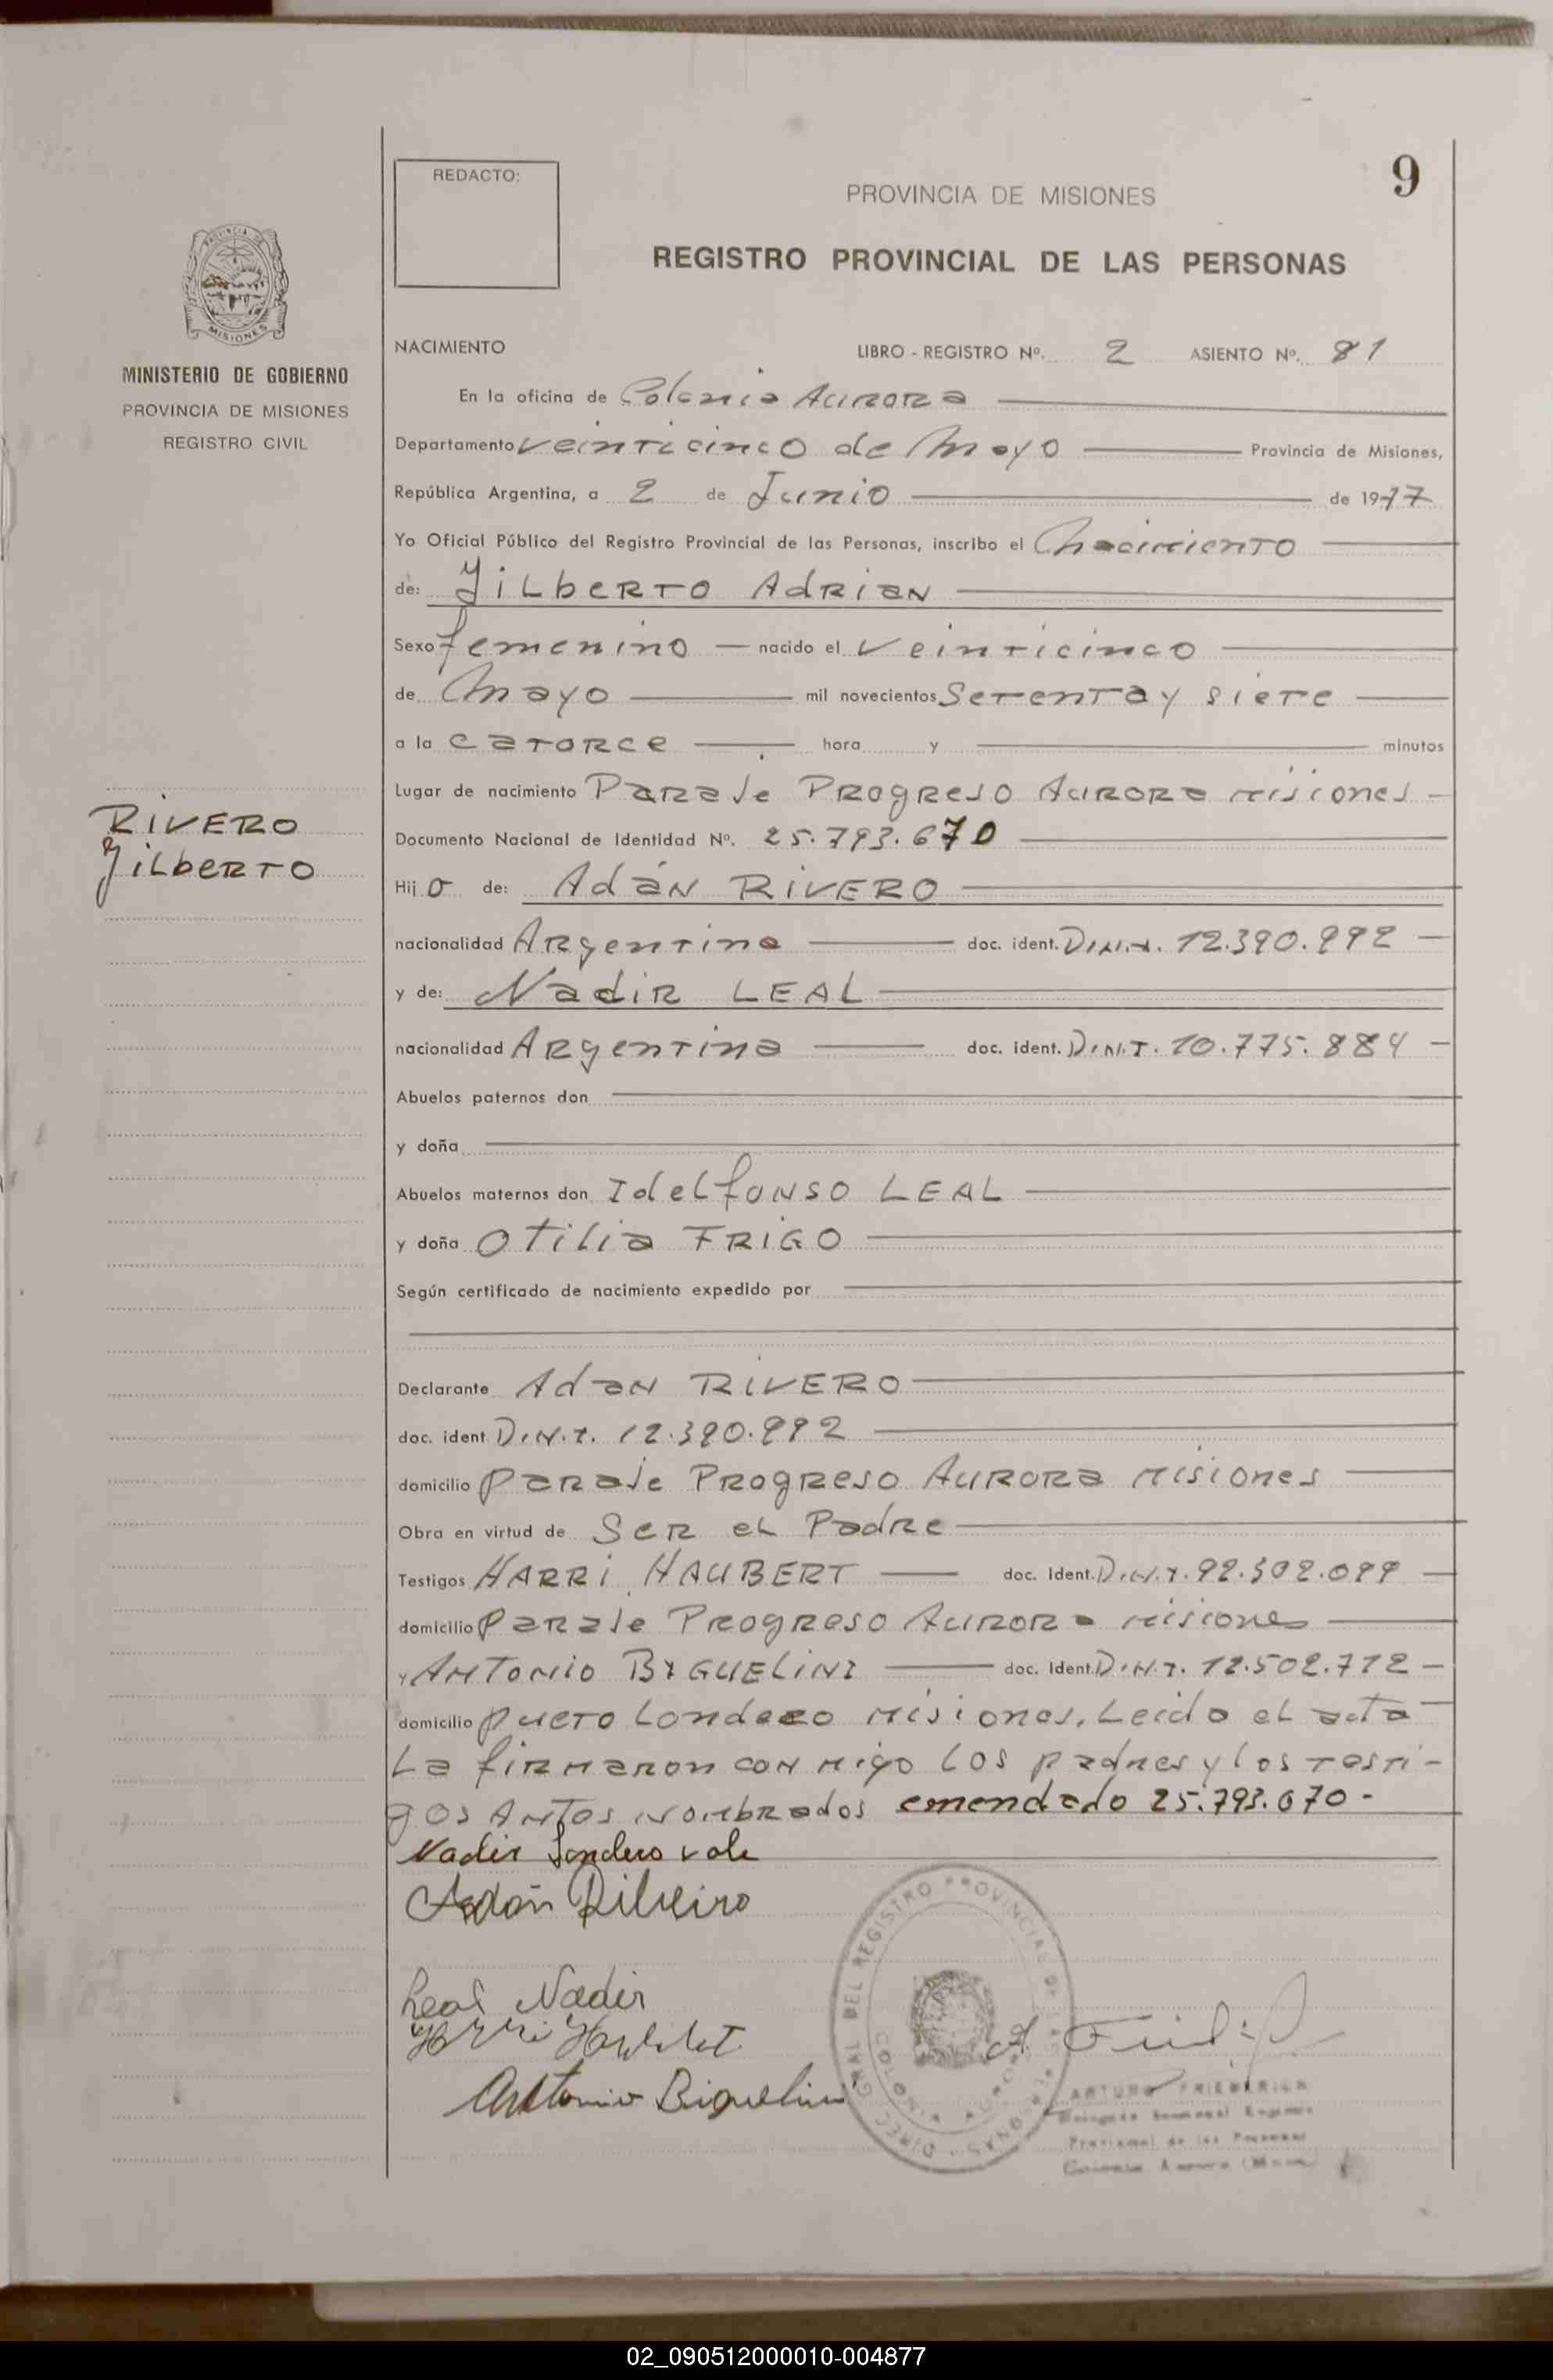 9
REDACTO:
PROVINCIA DE MISIONES
REGISTRO PROVINCIAL DE LAS PERSONAS
PROVINCIA DE
MISIONES
MINISTERIO DE GOBIERNO
PROVINCIA DE MISIONES
REGISTRO CIVIL
NACIMIENTO LIBRO - REGISTRO Nº. 2 ASIENTO Nº. 81
En la oficina de Colonia Aurora
Departamento veinticinco de Mayo Provincia de Misiones,
República Argentina, a 2 de Junio de 1977
Yo Oficial Público del Registro Provincial de las Personas, inscribo el Nacimiento
de: Gilberto Adrian
Sexo femenino nacido el veinticinco
de Mayo mil novecientos setenta y siete
a la catorce hora y minutos
Lugar de nacimiento Paraje Progreso Aurora Misiones
RIVERO
Gilberto
Documento Nacional de Identidad Nº. 25.793.670
Hijo de: Adán RIVERO
nacionalidad Argentina doc. ident. D.N.I. 12.390.992
y de: Nadir LEAL
nacionalidad Argentina doc. ident. D.N.I. 10.775.884
Abuelos paternos don
y doña
Abuelos maternos don Idelfonso LEAL
y doña Otilia FRIGO
Según certificado de nacimiento expedido por
Declarante Adan RIVERO
doc. ident D.N.I. 12.390.992
domicilio Paraje Progreso Aurora Misiones
Obra en virtud de Ser el Padre
Testigos HARRI HAUBERT doc. Ident. D.N.I. 92.302.099
domicilio Paraje Progreso Aurora Misiones
y ANTONIO BIGUELINI doc. Ident. D.N.I. 12.502.712
domicilio Puerto Londero Misiones, Leido el acta
La firmaron con migo los padres y los testi-
gos Antes nombrados emendado 25.793.670-
Nadir Londero vale
Adán Ribeiro
Leal Nadir
Harri Haubert
Antonio Biguelini
DIREC. GRAL. DEL REGISTRO PROVINCIAL DE LAS PERSONAS
COLONIA AURORA
ARTURO FRIEDRICH
Provincial de las Personas
Colonia Aurora
02_090512000010-004877